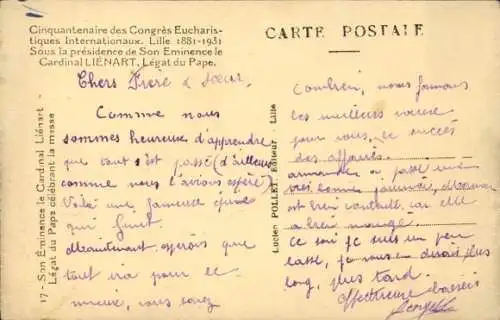 Cinquantenaire des Congrès Eucharis-
tiques Internationaux. Lille 1881-1931
Sous la présidence de Son Eminence le
Cardinal LIÉNART, Légat du Pape.
CARTE POSTALE
17 - Son Éminence le Cardinal Liénart -
Légat du Pape célébrant la messe
Lucien POLLET, Editeur - Lille
Chers Frère & Sœur,
Comme nous
sommes heureuse d'apprendre
que tout s'est passé (d'ailleurs
comme nous l'avions espéré)
Voilà une fameuse
qui finit.
Maintenant espérons que
tout ira pour le
mieux, vous savez
combien, nous formons
les meilleurs voeux
pour vous, le succès
des affaires.
a passé une
très bonne journée, Maman
est très contente, car elle
a bien mangé.
Ce soir je suis un peu
lasse, je vous en dirais plus
long, plus tard.
Affectueux baisers